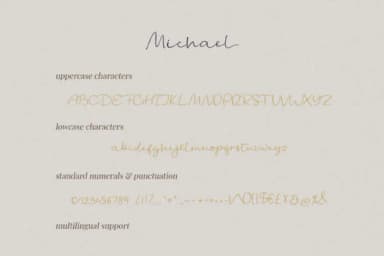 Michael
uppercase characters
ABCDEFGHIJKLMNOPQRSTUVWXYZ
lowcase characters
abcdefghijklmnopqrstuvwxyz
standard numerals & punctuation
0123456789
multilingual support